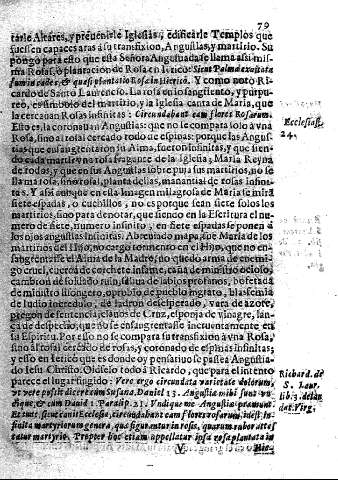 79
tarle Altares, y prevenirle Iglesias, edificarle Templos que
fuessen capaces aras à su transfixion, Angustias, y martirio. Su
pongo para esto que esta Señora Angustiada se llama assi mis-
ma Rosal, ò plantacion de Rosa en Iericò: Sicut Palma exaltata
sum in cades, & quasi plantatio Rosæ in Iericò. Y como notò Ri-
cardo de Santo Laurencio. La rosa en lo sangriento, y purpu-
reo, es simbolo del martirio, y la Iglesia canta de Maria, que
la cercauan Rosas infinitas: Circundabant eam flores Rosarum.
Esto es, la coronauan Angustias: que no se compara solo à vna
Rosa, sino al rosal cercado todo de espinas: porque las Angus-
tias que ensangrentaron su Alma, fueron infinitas, y que sien-
do cada martir vna rosa fragante de la Iglesia, Maria Reyna
de todos, y que en sus Angustias sobre puja sus martirios, no se
llama rosa, sino rosal, planta dellas, manantial de rosas infini-
tas. Y assi aunque en esta Imagen milagrosa de Maria se mira
siete espadas, o cuchillos, no es porque sean siete solos los
martirios, sino para denotar, que siendo en la Escritura el nu
mero de siete, numero infinito, en siete espadas se ponen à
los ojos angustias infinitas. Abreuiado mapa fue Maria de los
martirios del Hijo, no cargò tormento en el Hijo, que no en-
sangrentasse el Alma de la Madre, no quedò arma de enemi-
go cruel, cuerda de corchete infame, caña de ministro ocioso,
cambron de soldado ruin, saliua de labios profanos, bofetada
de ministro lisongero, oprobio de pueblo ingrato, blasfemia
de Iudio incredulo, de ladron desesperado, vara de azote,
pregon de sentencia, clauos de Cruz, esponja de vinagre, lan-
ça de despecho, que no se ensangrentasse incruentamente en
su Espiritu. Por esso no se compara su transfixion à vna Rosa,
sino al rosal cercado de rosas, y coronado de espinas infinitas;
y esso en Iericò que es donde oy pensatiuo se passea Angustia-
do Iesu Christo. Oidselo todo à Ricardo, que para el intento
parece el lugar fingido: Vere ergo circundata varietate dolorum,
ut vere possit dicere cum Susana, Daniel 13. Angustiæ mihi sunt vn
dique, & cum Dauid 1. Paralip. 21. Vndique me Angustiæ premunt.
Et tunc sicut canit Ecclesia, circundabant eam flores rosarum, idest. In-
finita martyriorum genera, quæ figurantur in rosis, quarum rubor attes
tatur martyrio. Propter hoc etiam appellatur ipsa rosa plantata in
V
Hie-
Ecclesiast.
24.
Richard. de
S. Laur.
lib. 3. de lau
dat. Virg.